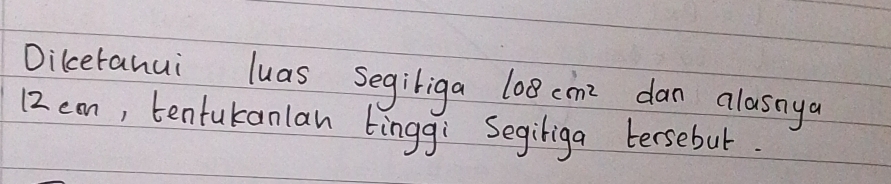 Diketahui luas segitiga 108 cm² dan alasnya
12 cm, tentukanlah tinggi segitiga tersebut.